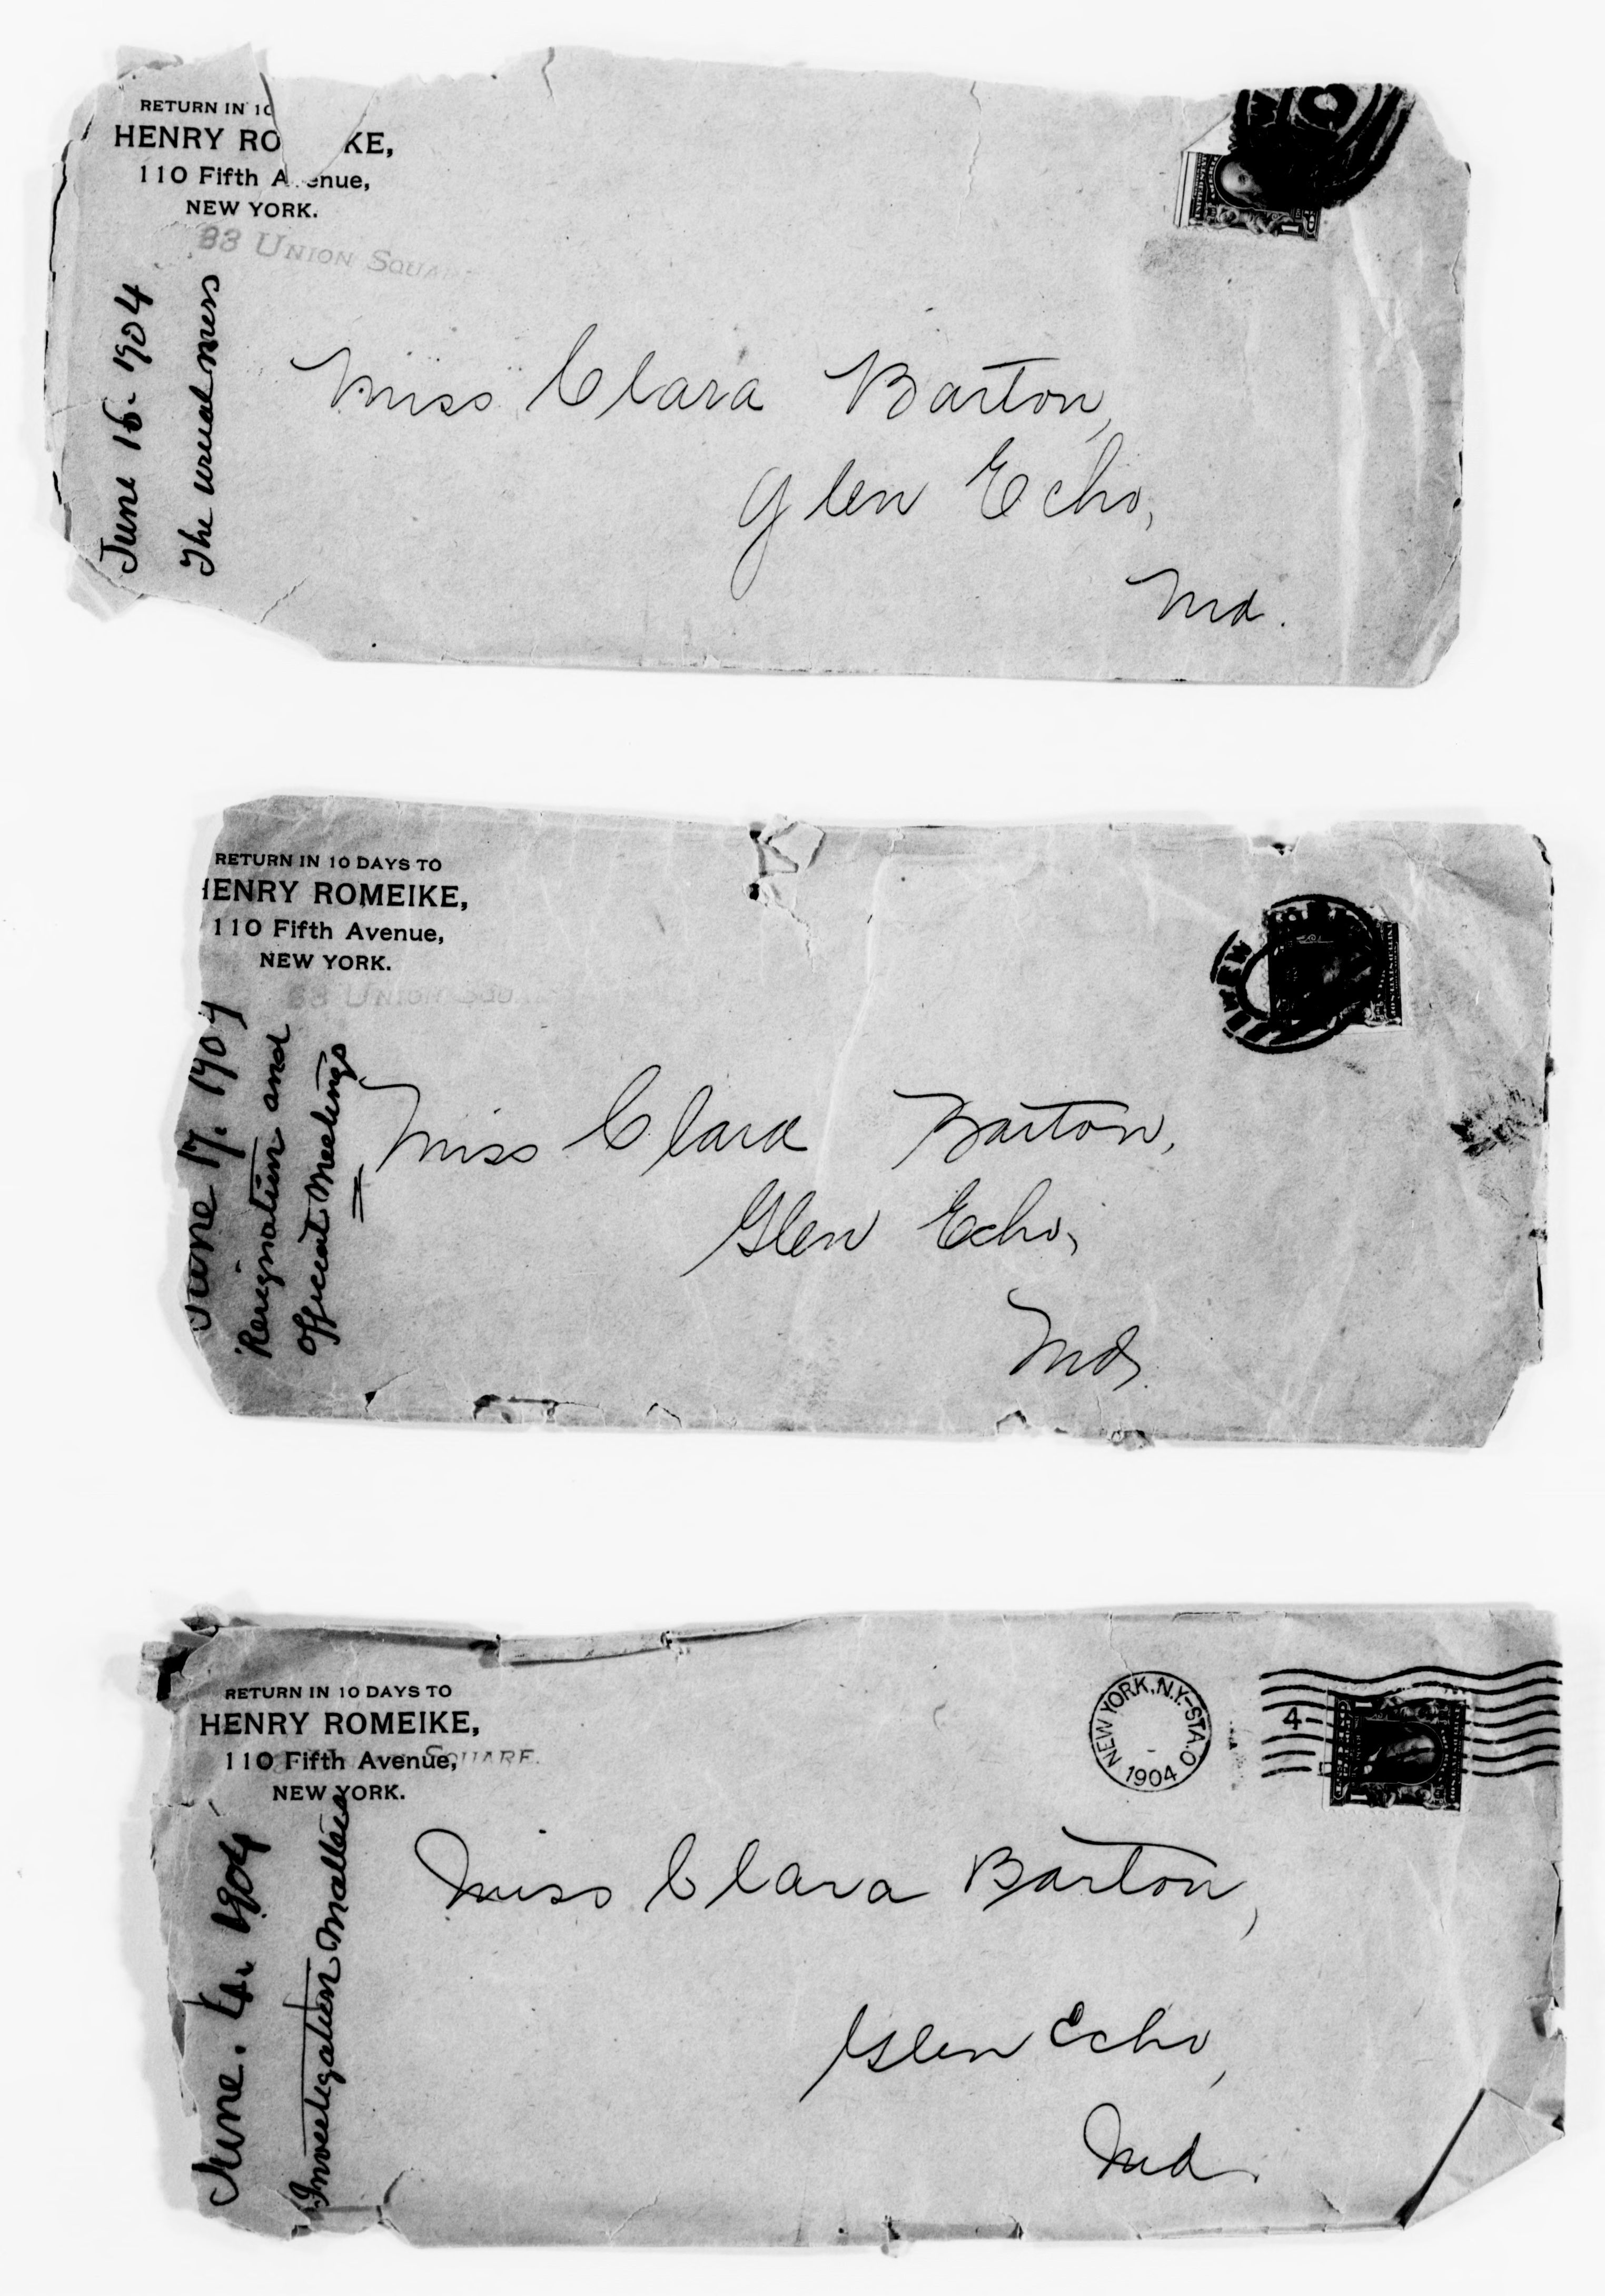 RETURN IN 10
HENRY RO KE,
110 Fifth A enue,
NEW YORK.
33 UNION SQUAR
June 16. 1904
The usual mess
Miss Clara Barton,
Glen Echo,
Md.
RETURN IN 10 DAYS TO
HENRY ROMEIKE,
110 Fifth Avenue,
NEW YORK.
33 UNION SQUA
June 17. 1904
Resignation and
Official Meetings
Miss Clara Barton,
Glen Echo,
Md.
NEW
RETURN IN 10 DAYS TO
HENRY ROMEIKE,
110 Fifth Avenue,
SQUARE.
NEW YORK.
NEW YORK, N.Y.-STA. O
1904
4-
June. 1904
Investigation Matters
Miss Clara Barton,
Glen Echo,
Md.